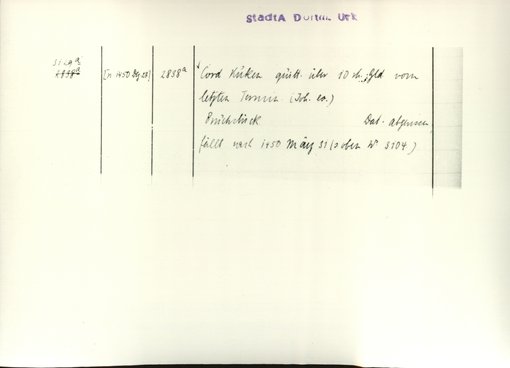 StadtA Dortm. Urk
2838ª
Cord Küken quitt. über 10 rh. Gld vom
letzten Termin. (Joh. ev.)
Bruchstück Dat. abgerissen
fällt nach 1450 März 31 (s oben Nr 3104)